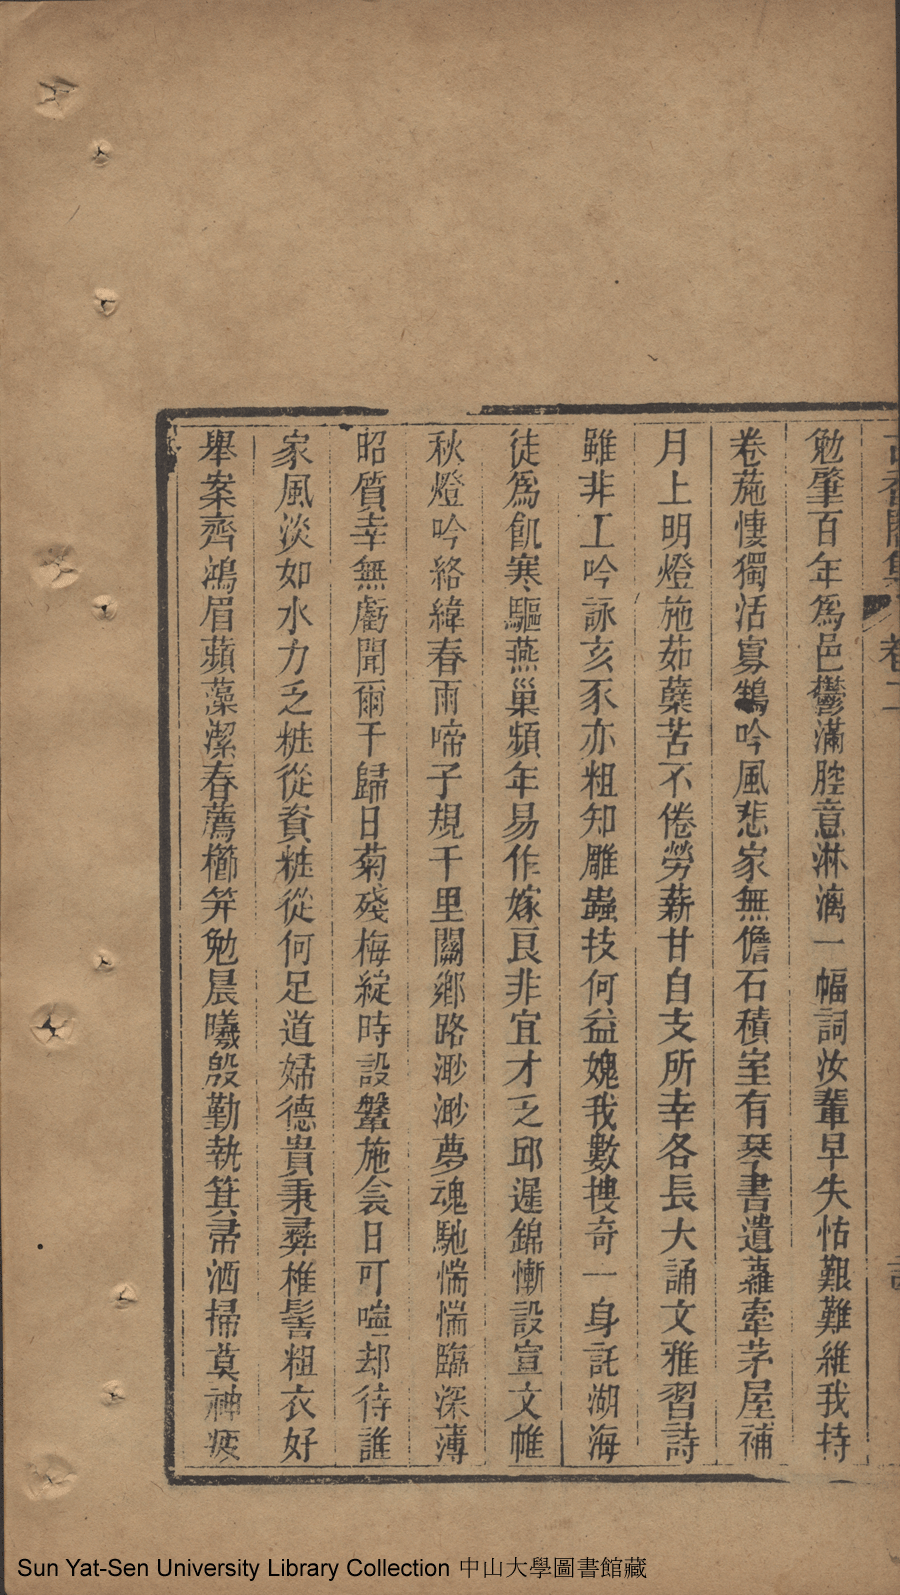 勉肇百年為邑鬱滿腔意淋漓一幅詞汝輩早失怙艱難維我持
卷葹悽獨活寡鵠吟風悲家無儋石積室有琴書遺蘿牽茅屋補
月上明燈施茹蘗苦不倦勞薪甘自支所幸各長大誦文雅習詩
雖非工吟詠亥豕亦粗知雕蟲技何益媿我數搜奇一身託湖海
徒為飢寒驅燕巢頻年易作嫁良非宜才乏邱遲錦慚設宣文帷
秋燈吟絡緯春雨啼子規千里關鄉路渺渺夢魂馳惴惴臨深薄
昭質幸無虧聞爾于歸日菊殘梅綻時設鞶施衾日可噓却待誰
家風淡如水力乏粧從資粧從何足道婦德貴秉彞椎髻粗衣好
舉案齊鴻眉蘋藻潔春薦櫛笄勉晨曦殷勤執箕帚洒掃莫神疲
卷二
Sun Yat-Sen University Library Collection 中山大學圖書館藏